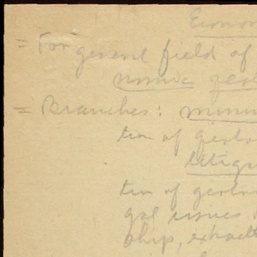 Econom
= For general field of
nomic geol
= Branches: mining
tion of geolo
litiga
tion of geolo
gal issues
ship, extract